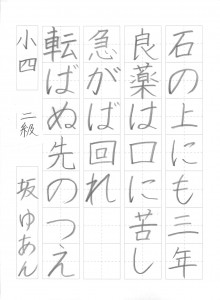 石の上にも三年
良薬は口に苦し
急がば回れ
転ばぬ先のつえ
小四 二級 坂ゆあん